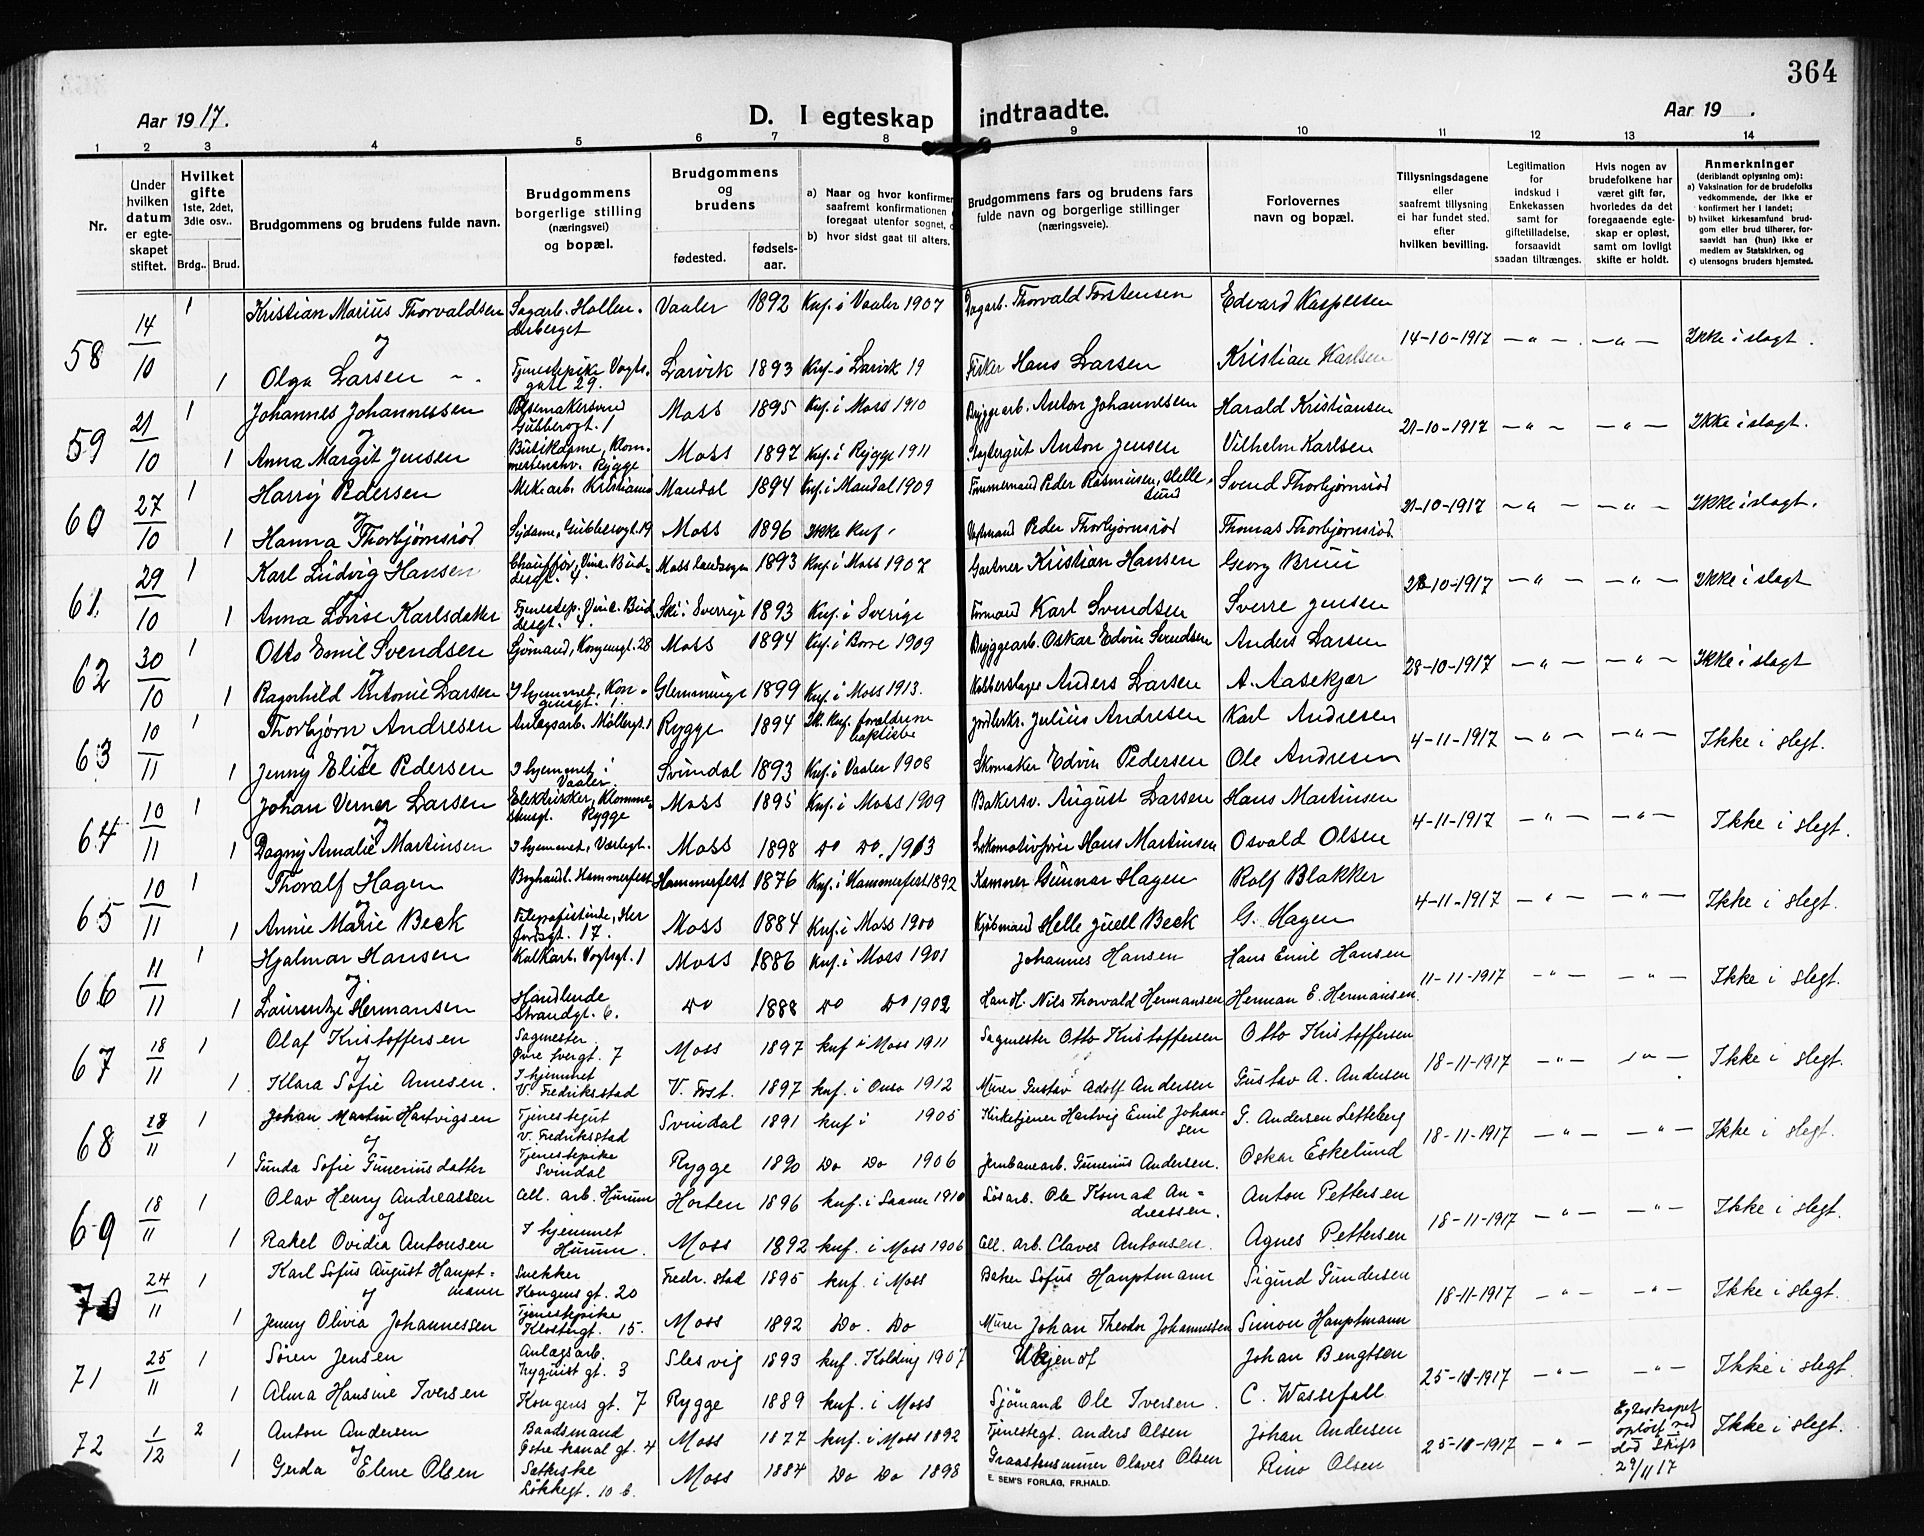 364
Aar 1917.
D. I egteskap indtraadte.
Aar 19 .
1 2 3 4 5 6 7 8 9 10 11 12 13 14
Nr.
Under hvilken datum er egteskapet stiftet.
Hvilket gifte 1ste, 2det, 3die osv..
Brdg.. Brud.
Brudgommens og brudens fulde navn.
Brudgommens borgerlige stilling (næringsvei) og bopæl.
Brudgommens og brudens
fødested. fødselsaar.
a) Naar og hvor konfirmer
saafremt konfirmationen
foregaat utenfor sognet,
b) hvor sidst gaat til alters.
Brudgommens fars og brudens fars fulde navn og borgerlige stillinger (næringsveie).
Forlovernes navn og bopæl.
Tillysningsdagene eller saafremt tillysning ei har fundet sted. efter hvilken bevilling.
Legitimation for indskud i Enkekassen samt for giftetilladelse, forsaavidt saadan tiltrænges.
Hvis nogen av brudefolkene har været gift før, hvorledes da det foregaaende egteskap er opløst, samt om lovligt skifte er holdt.
Anmerkninger
(deriblandt oplysning om):
a) Vaksination for de brudefolks vedkommende, der ikke er konfirmert her i landet;
b) hvilket kirkesamfund brudgom eller brud tilhører, forsaavidt han (hun) ikke er medlem av Statskirken, og
c) utensogns bruders hjemsted.
58 14/10 1 Kristian Marius Thorvaldsen Sagarb. Hollenderberget Vaaler 1892 Knf. i Vaaler 1907 Dagarb. Thorvald Torstensen Edvard Kaspersen 14-10-1917 — „ — — „ — Ikke i slegt.
og
1 Olga Larsen Tjenestepike Vogtsgate 29. Larvik 1893 Knf. i Larvik 19 Fisker Hans Larsen Kristian Karlsen
59 21/10 1 Johannes Johannessen Gubberogt. 1 Moss 1895 Knf. i Moss 1910 Bryggearb. Anton Johannesen Harald Kristiansen 21-10-1917 — „ — — „ — Ikke i slegt.
og
1 Anna Margit Jensen Butikdame, Rygge Moss 1897 Knf. i Rygge 1911 Anton Jensen Vilhelm Karlsen
60 27/10 1 Harry Pedersen Kristiania Mandal 1894 Knf. i Mandal 1909 Tømmermand Peder Rasmussen, Hellesund Svend Thorbjørnsrød 21-10-1917 — „ — — „ — Ikke i slegt.
og
1 Hanna Thorbjørnsrød Sydame, Gubberogt. 19 Moss 1896 Ikke Knf. Peder Thorbjørnsrød Thomas Thorbjørnsrød
61. 29/10 1 Karl Ludvig Hansen Chauffør, Vinc. Buddesgt. 4. Moss landsogn 1893 Knf. i Moss 1907 Gartner Kristian Hansen Georg Bruu 28-10-1917 — „ — — „ — Ikke i slegt
1 Anna Lovise Karlsdatter Tjenestep. Vinc. Buddesgt. 4. Ski i Sverrige 1893 Knf. i Sverige Formand Karl Svendsen Sverre Jensen
62 30/10 1 Otto Emil Svendsen Sjømand, Kongensgt. 28 Moss 1894 Knf. i Borre 1909 Bryggearb. Oskar Edvin Svendsen Anders Larsen 28-10-1917 — „ — — „ — Ikke i slegt
og
1 Ragnhild Antonie Larsen I hjemmet, Kongensgt. 1. Glemminge 1899 Knf. i Moss 1913. Kobberslager Anders Larsen A. Aasekjær
63 10/11 1 Thorbjørn Andresen Anlagsarb. Møllergt. 1 Rygge 1894 Ik. Knf. forældrene baptister Julius Andresen Karl Andresen 4-11-1917 — „ — — „ — Ikke i slegt.
og
1 Jenny Elise Pedersen I hjemmet i Vaaler. Svindal 1893 Knf. i Vaaler 1908 Skomaker Edvin Pedersen Ole Andresen
64 10/11 1 Johan Verner Larsen Elektriker, Rygge Moss 1895 Knf. i Moss 1909 Bakersv. August Larsen Hans Martinsen 4-11-1917 — „ — — „ — Ikke i slegt.
og
1 Dagny Amalie Martinsen I hjemmet, Værlegt. Moss 1898 Do Do. 1913 Lokomotivfører Hans Martinsen Osvald Olsen
65 10/11 1 Thoralf Hagen Boghandl. Hammerfest Hammerfest 1876 Knf. i Hammerfest 1892 Kæmner Gunnar Hagen Rolf Blakker 4-11-1917 — „ — — „ — Ikke i slegt.
og
1 Annie Marie Beck Telegrafistinde, Herfordsgt. 17. Moss 1884 Knf. i Moss 1900 Kjøbmand Helle Juell Beck G. Hagen
66 11/11 1 Hjalmar Hansen Kalkarb. Vogtsgt. 1 Moss 1886 Knf. i Moss 1901 Johannes Hansen Hans Emil Hansen 11-11-1917 — „ — — „ — Ikke i slegt.
og.
1 Laurentze Hermansen Handlende Strandgt. 6. Do 1888 Do Do 1902 Handl. Nils Thorvald Hermansen Herman E. Hermansen
67 18/11 1 Olaf Kristoffersen Sagmester Øvre tvergt. 7 Moss 1897 knf i Moss 1911 Sagmester Otto Kristoffersen Otto Kristoffersen 18-11-1917 — „ — — „ — Ikke i slegt.
og
1 Klara Sofie Arnesen. I hjemmet V. Fredriksstad V. Frst. 1897 knf. i Onsø 1912 Murer Gustav Adolf Andersen Gustav A. Andersen
68 18/11 1 Johan Martin Hartvigsen Tjenestegut V. Fredriksstad Svindal 1891 knf i 1905 Kirketjener Hartvig Emil Johansen G. Andersen Letteberg 18-11-1917 — „ — — „ — Ikke i slegt.
og
1 Gunda Sofie Guneriusdatter Tjenestepike Svindal Rygge 1890 Do Do 1906 Jernbanearb. Gunerius Andersen. Oskar Eskelund
69 18/11 1 Olav Henry Andreassen Cell. arb. Hurum Horten 1896 knf. i Saaner 1910 Løsarb. Ole Konrad Andreassen. Anton Pettersen 18-11-1917 — „ — — „ — Ikke i slegt.
og
1 Rakel Ovidia Antonsen I hjemmet Hurum. Moss 1892 knf. i Moss 1906 Cell. arb. Claves Antonsen. Agnes Pettersen
70 24/11 1 Karl Sofus August Hauptmann Snekker Kongens gt. 20 Fredr.stad 1895 knf. i Moss Baker Sofus Hauptmann Sigurd Gundersen 18-11-1917 — „ — — „ — Ikke i slegt.
og
1 Jenny Olivia Johannessen Tjenestepike Klostergt. 15. Moss 1892 Do. Do Murer Johan Theodor Johannessen Simon Hauptmann
71 25/11 1 Søren Jensen Anlagsarb. Nyquist gt. 3 Slesvig 1893 knf. Kolding 1907 Ukjendt Johan Bengtsen 25-11-1917 — „ — — „ — Ikke i slegt.
1 Alma Hansine Iversen Kongens gt. 7 Rygge 1889 knf. i Moss Sjømand Ole Iversen. C. Wassefall
72 1/12 2 Anton Andersen Baadsmand Østre kanal gt. 4 Moss 1877 knf. i Moss 1892 Tjenestegt. Anders Olsen Johan Andersen 25-11-1917 — „ — Egteskapet opløst ved død Skift 29/11 17 Ikke i slegt.
og
1 Gerda Elene Olsen Løkkegt. 10 b. Moss 1884 Do Do 1898 Graastensmurer Olaves Olsen Rino Olsen
E. SEM'S FORLAG, FR.HALD.